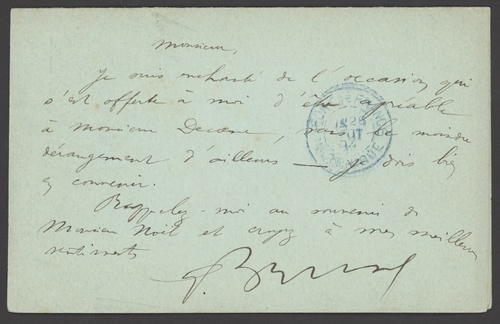 Monsieur,
Je suis enchanté de l'occasion qui
s'est offerte à moi d'être agréable
à Monsieur Decaene, sans le moindre
dérangement d'ailleurs — je dois bien
en convenir.
Rappelez-moi au souvenir de
Monsieur Noël et croyez à mes meilleurs
sentiments